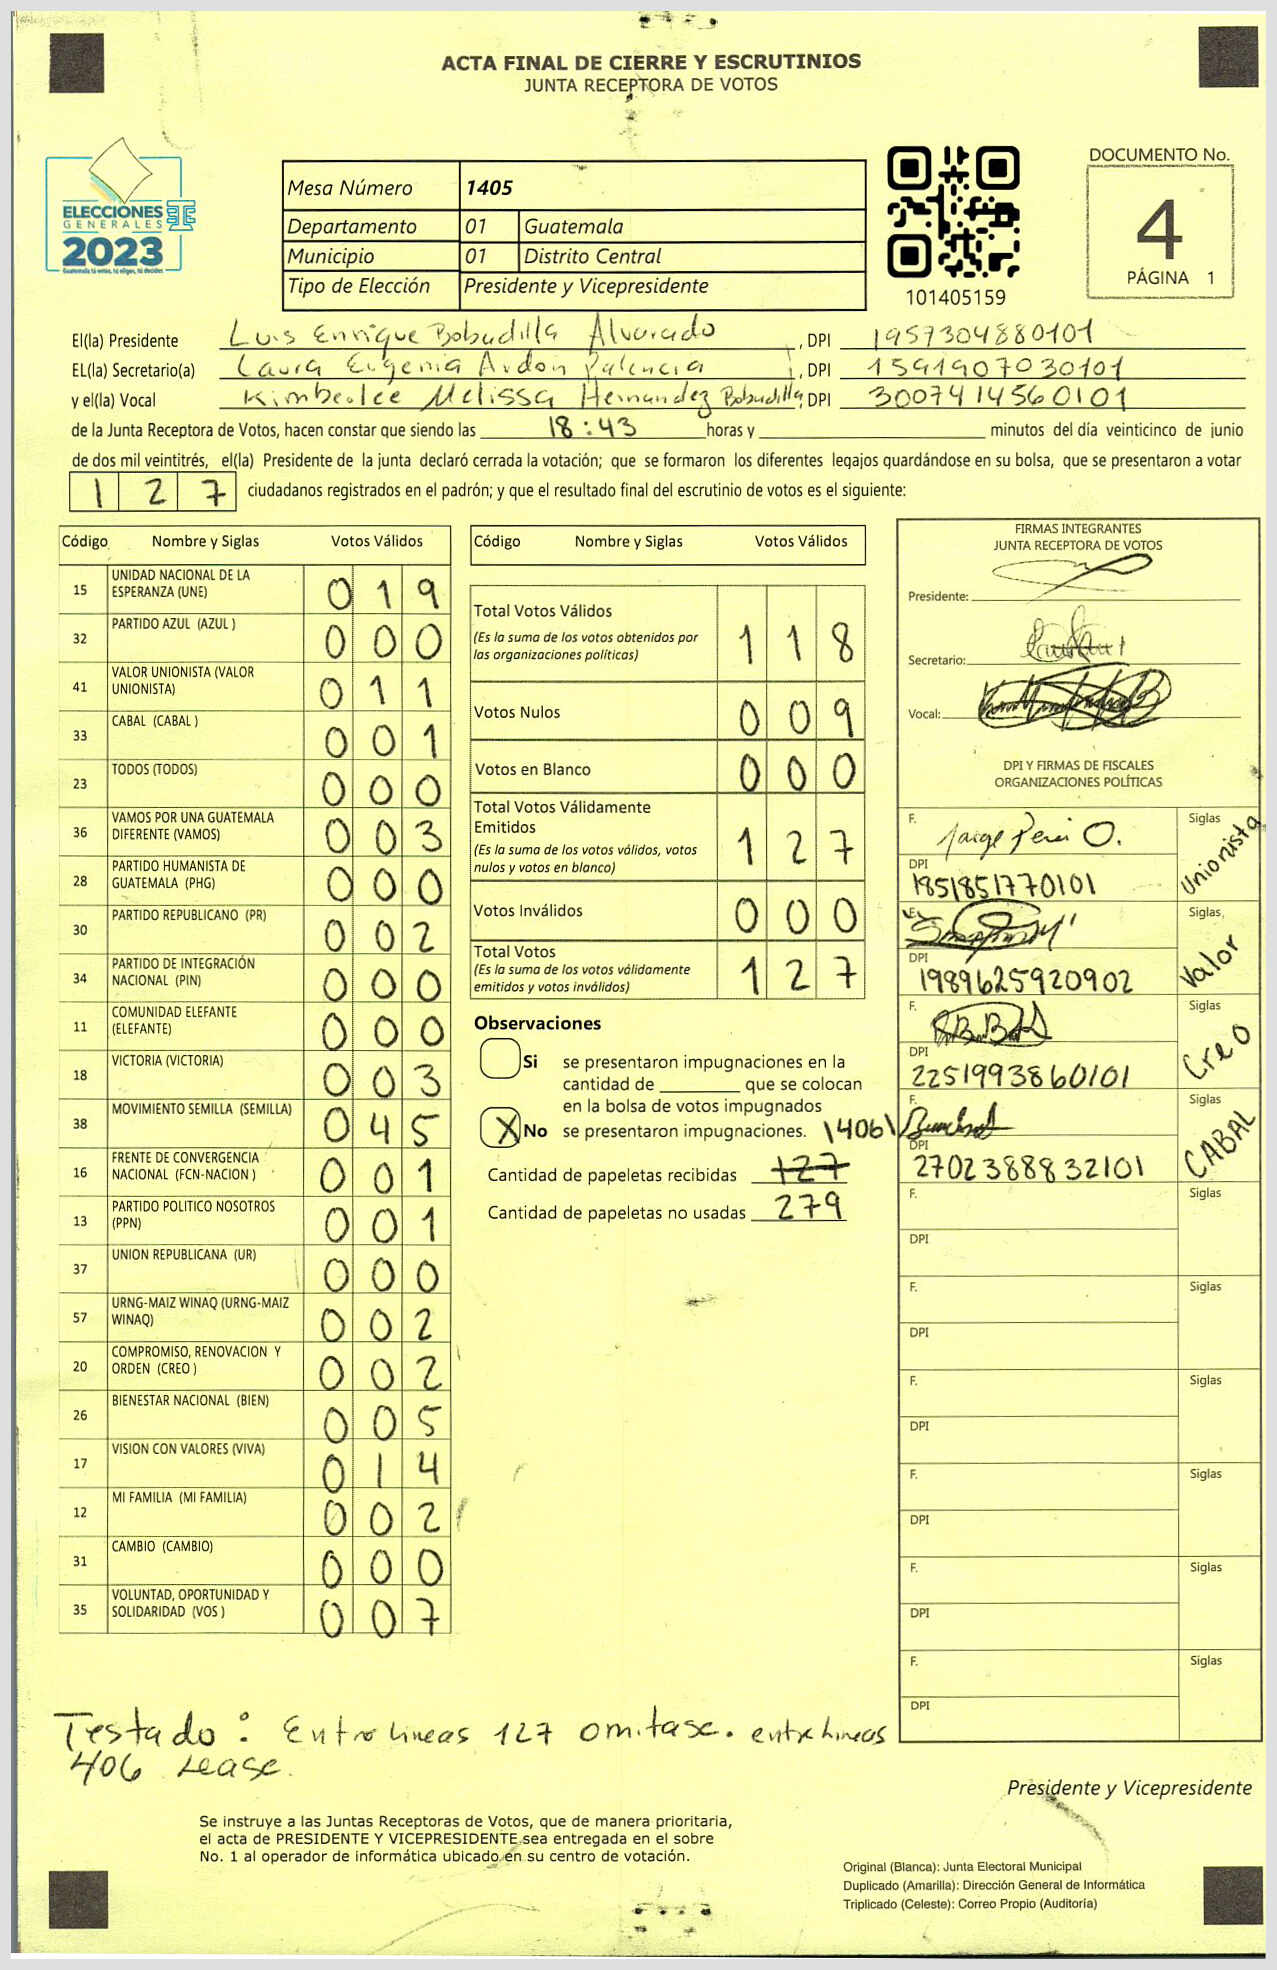 ACTA FINAL DE CIERRE Y ESCRUTINIOS
JUNTA RECEPTORA DE VOTOS
ELECCIONES
GENERALES
2023
Guatemala tú votas, tú eliges, tú decides
Mesa Número 1405
Departamento 01 Guatemala
Municipio 01 Distrito Central
Tipo de Elección Presidente y Vicepresidente
101405159
DOCUMENTO No.
4
PÁGINA 1
El(la) Presidente Luis Enrique Bobadilla Alvarado, DPI 1957304880101
EL(la) Secretario(a) Laura Eugenia Ardon Palencia, DPI 1591907030101
y el(la) Vocal Kimberlee Melissa Hernandez Bobadilla, DPI 3007414560101
de la Junta Receptora de Votos, hacen constar que siendo las 18:43 horas y minutos del día veinticinco de junio
de dos mil veintitrés, el(la) Presidente de la junta declaró cerrada la votación; que se formaron los diferentes legajos guardándose en su bolsa, que se presentaron a votar
127 ciudadanos registrados en el padrón; y que el resultado final del escrutinio de votos es el siguiente:
Código Nombre y Siglas Votos Válidos
15 UNIDAD NACIONAL DE LA ESPERANZA (UNE) 019
32 PARTIDO AZUL (AZUL ) 000
41 VALOR UNIONISTA (VALOR UNIONISTA) 011
33 CABAL (CABAL ) 001
23 TODOS (TODOS) 000
36 VAMOS POR UNA GUATEMALA DIFERENTE (VAMOS) 003
28 PARTIDO HUMANISTA DE GUATEMALA (PHG) 000
30 PARTIDO REPUBLICANO (PR) 002
34 PARTIDO DE INTEGRACIÓN NACIONAL (PIN) 000
11 COMUNIDAD ELEFANTE (ELEFANTE) 000
18 VICTORIA (VICTORIA) 003
38 MOVIMIENTO SEMILLA (SEMILLA) 045
16 FRENTE DE CONVERGENCIA NACIONAL (FCN-NACION ) 001
13 PARTIDO POLITICO NOSOTROS (PPN) 001
37 UNION REPUBLICANA (UR) 000
57 URNG-MAIZ WINAQ (URNG-MAIZ WINAQ) 002
20 COMPROMISO, RENOVACION Y ORDEN (CREO ) 002
26 BIENESTAR NACIONAL (BIEN) 005
17 VISION CON VALORES (VIVA) 014
12 MI FAMILIA (MI FAMILIA) 002
31 CAMBIO (CAMBIO) 000
35 VOLUNTAD, OPORTUNIDAD Y SOLIDARIDAD (VOS ) 007
Código Nombre y Siglas Votos Válidos
Total Votos Válidos 118
(Es la suma de los votos obtenidos por
las organizaciones políticas)
Votos Nulos 009
Votos en Blanco 000
Total Votos Válidamente
Emitidos 127
(Es la suma de los votos válidos, votos
nulos y votos en blanco)
Votos Inválidos 000
Total Votos 127
(Es la suma de los votos válidamente
emitidos y votos inválidos)
Observaciones
Si se presentaron impugnaciones en la
cantidad de que se colocan
en la bolsa de votos impugnados
X No se presentaron impugnaciones. 1406
Cantidad de papeletas recibidas 127
Cantidad de papeletas no usadas 279
FIRMAS INTEGRANTES
JUNTA RECEPTORA DE VOTOS
Presidente:
Secretario:
Vocal:
DPI Y FIRMAS DE FISCALES
ORGANIZACIONES POLÍTICAS
F. Siglas
DPI Unionista
1851851770101
F. Siglas
DPI Valor
1989625920902
F. Siglas
DPI Creo
2251993860101
F. Siglas
DPI CABAL
2702388832101
F. Siglas
DPI
F. Siglas
DPI
F. Siglas
DPI
F. Siglas
DPI
F. Siglas
DPI
F. Siglas
DPI
Testado: Entre lineas 127 omitase. entre lineas
406 Lease.
Presidente y Vicepresidente
Se instruye a las Juntas Receptoras de Votos, que de manera prioritaria,
el acta de PRESIDENTE Y VICEPRESIDENTE sea entregada en el sobre
No. 1 al operador de informática ubicado en su centro de votación.
Original (Blanca): Junta Electoral Municipal
Duplicado (Amarilla): Dirección General de Informática
Triplicado (Celeste): Correo Propio (Auditoría)